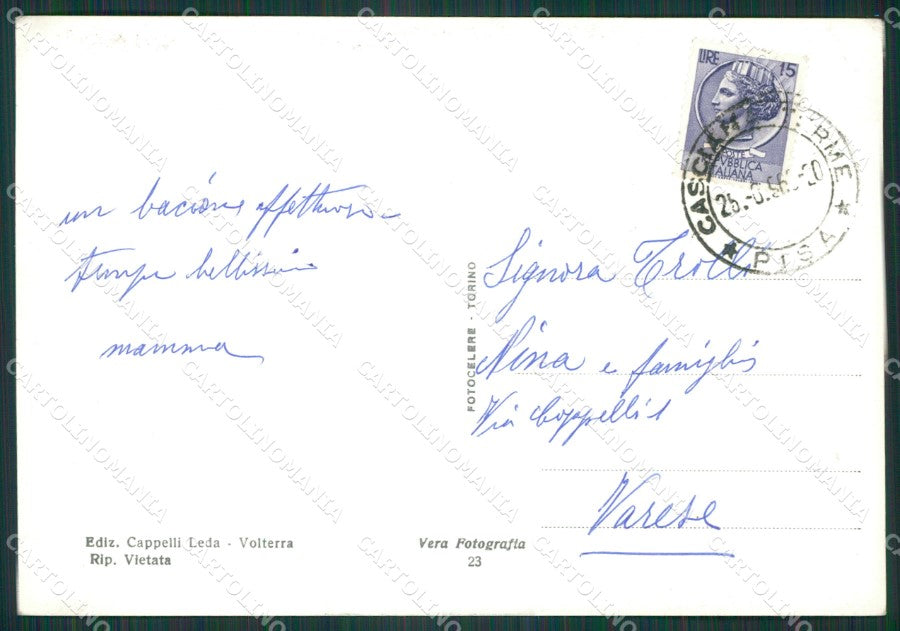 LIRE 15
POSTE
REPUBBLICA
ITALIANA
CASCIANA TERME
PISA
un bacione affettuoso
tempo bellissimo
mamma
Signora Trolli
Nina e famiglia
Via Coppelli 1
Varese
FOTOCELERE - TORINO
Ediz. Cappelli Leda - Volterra
Rip. Vietata
Vera Fotografia
23
CARTOLINOMANIA